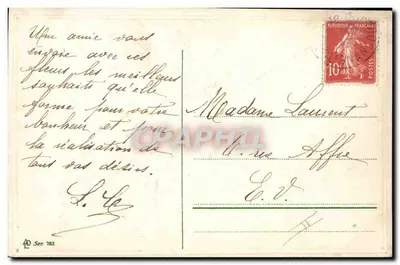 Une amie vous
envoie avec ces
fleurs les meilleurs
souhaits qu'elle
forme pour votre
bonheur et pour
la réalisation de
tous vos désirs.
Madame Laurent
rue Affre
E. V.
REPUBLIQUE FRANÇAISE
10
POSTES
CPAPHIL
Ser. 782